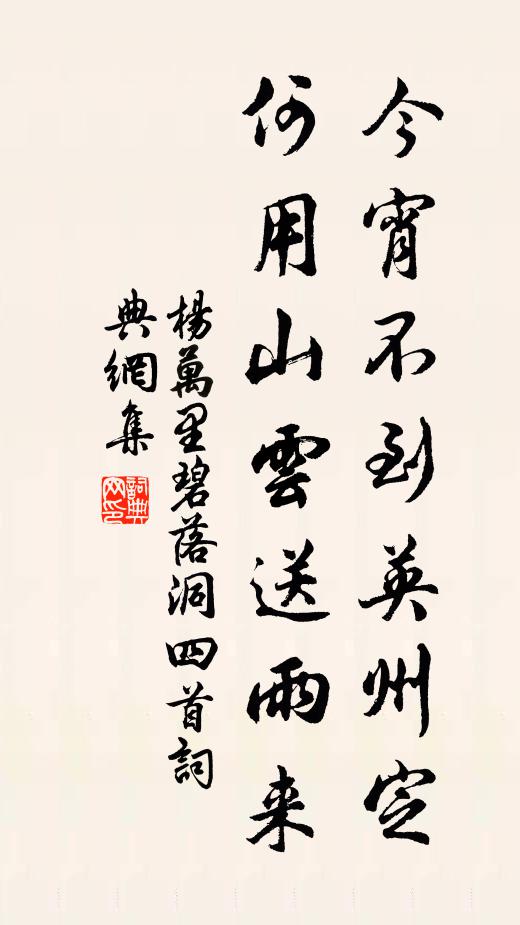 今宵不到英州定
何用山雲送雨来
楊萬里碧落洞四首詞
典網集
詞典网印